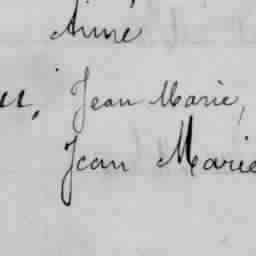 Anne
u, Jean Marie,
Jean Marie